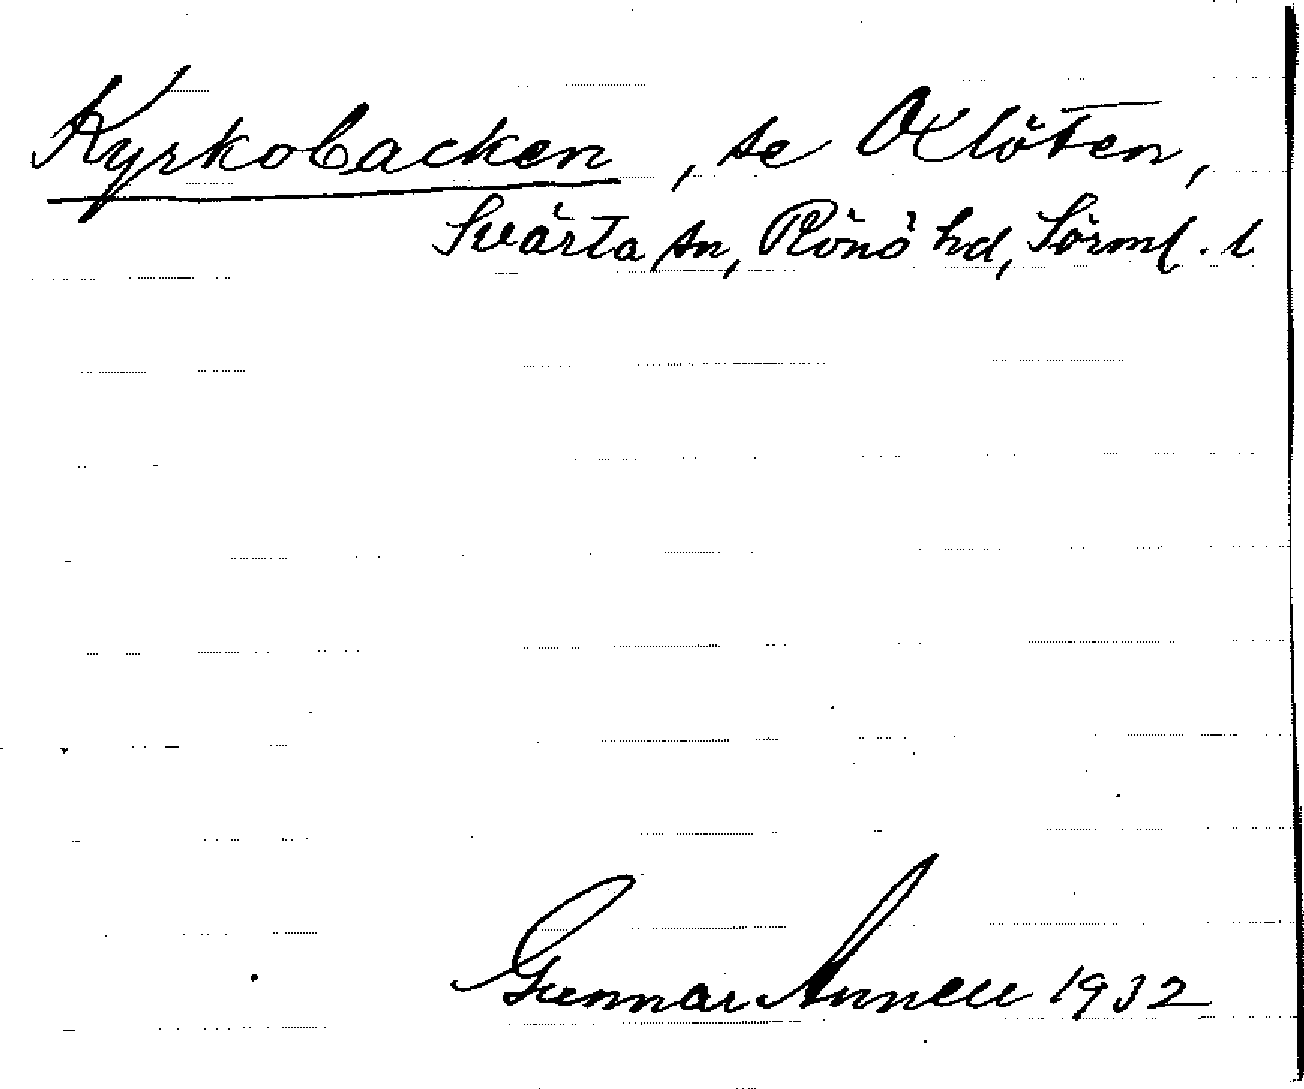 Kyrkobacken, se Oxlöten,
Svärta sn, Rönö hd, Sörml. l
Gunnar Annell 1932